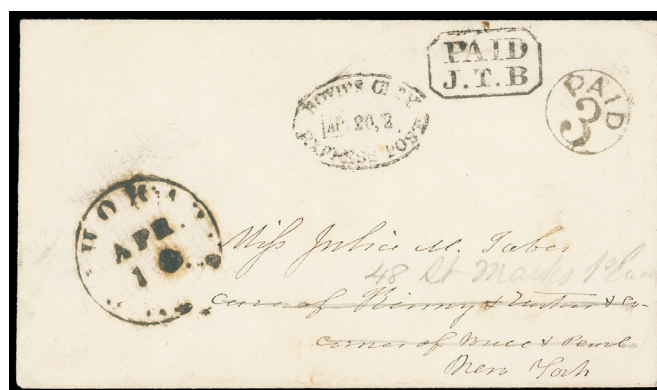 PAID
J.T.B
BOYD'S CITY
AP. 20, 2
EXPRESS POST
PAID
3
APR
1
Miss Julia M. Tabor
48 St Marks Place
care of Kinny & & Co
corner of & Pearl
New York